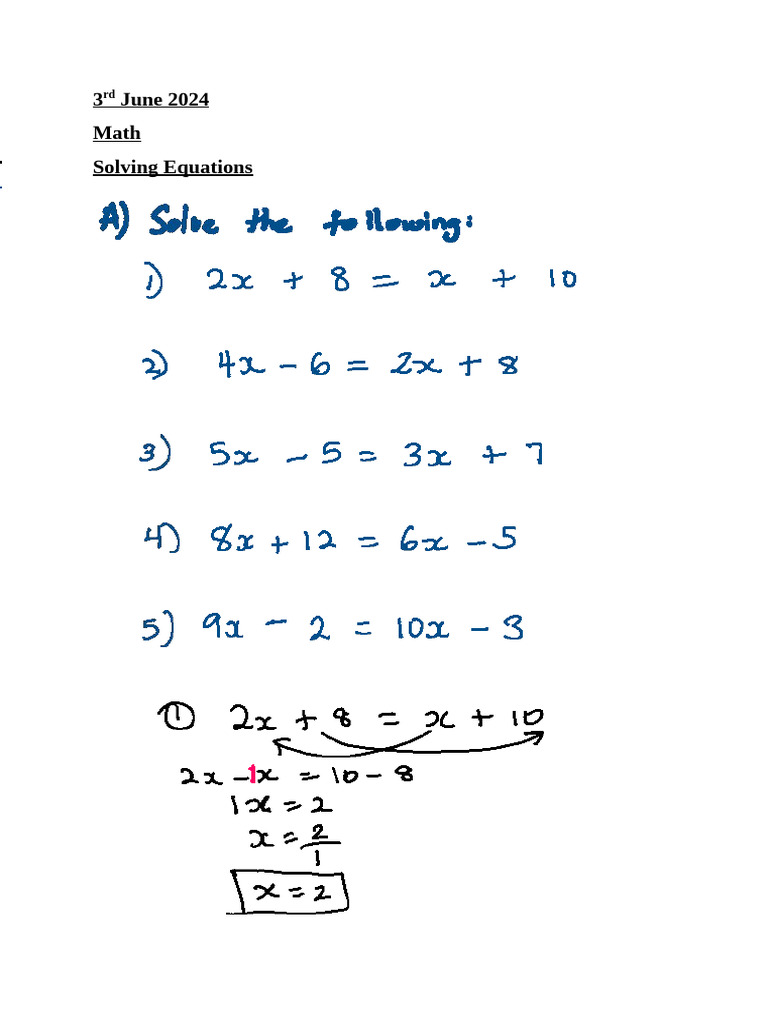 3rd June 2024
Math
Solving Equations
A) Solve the following:
1) 2x + 8 = x + 10
2) 4x - 6 = 2x + 8
3) 5x - 5 = 3x + 7
4) 8x + 12 = 6x - 5
5) 9x - 2 = 10x - 3
① 2x + 8 = x + 10
2x - 1x = 10 - 8
1x = 2
x = 2/1
x = 2